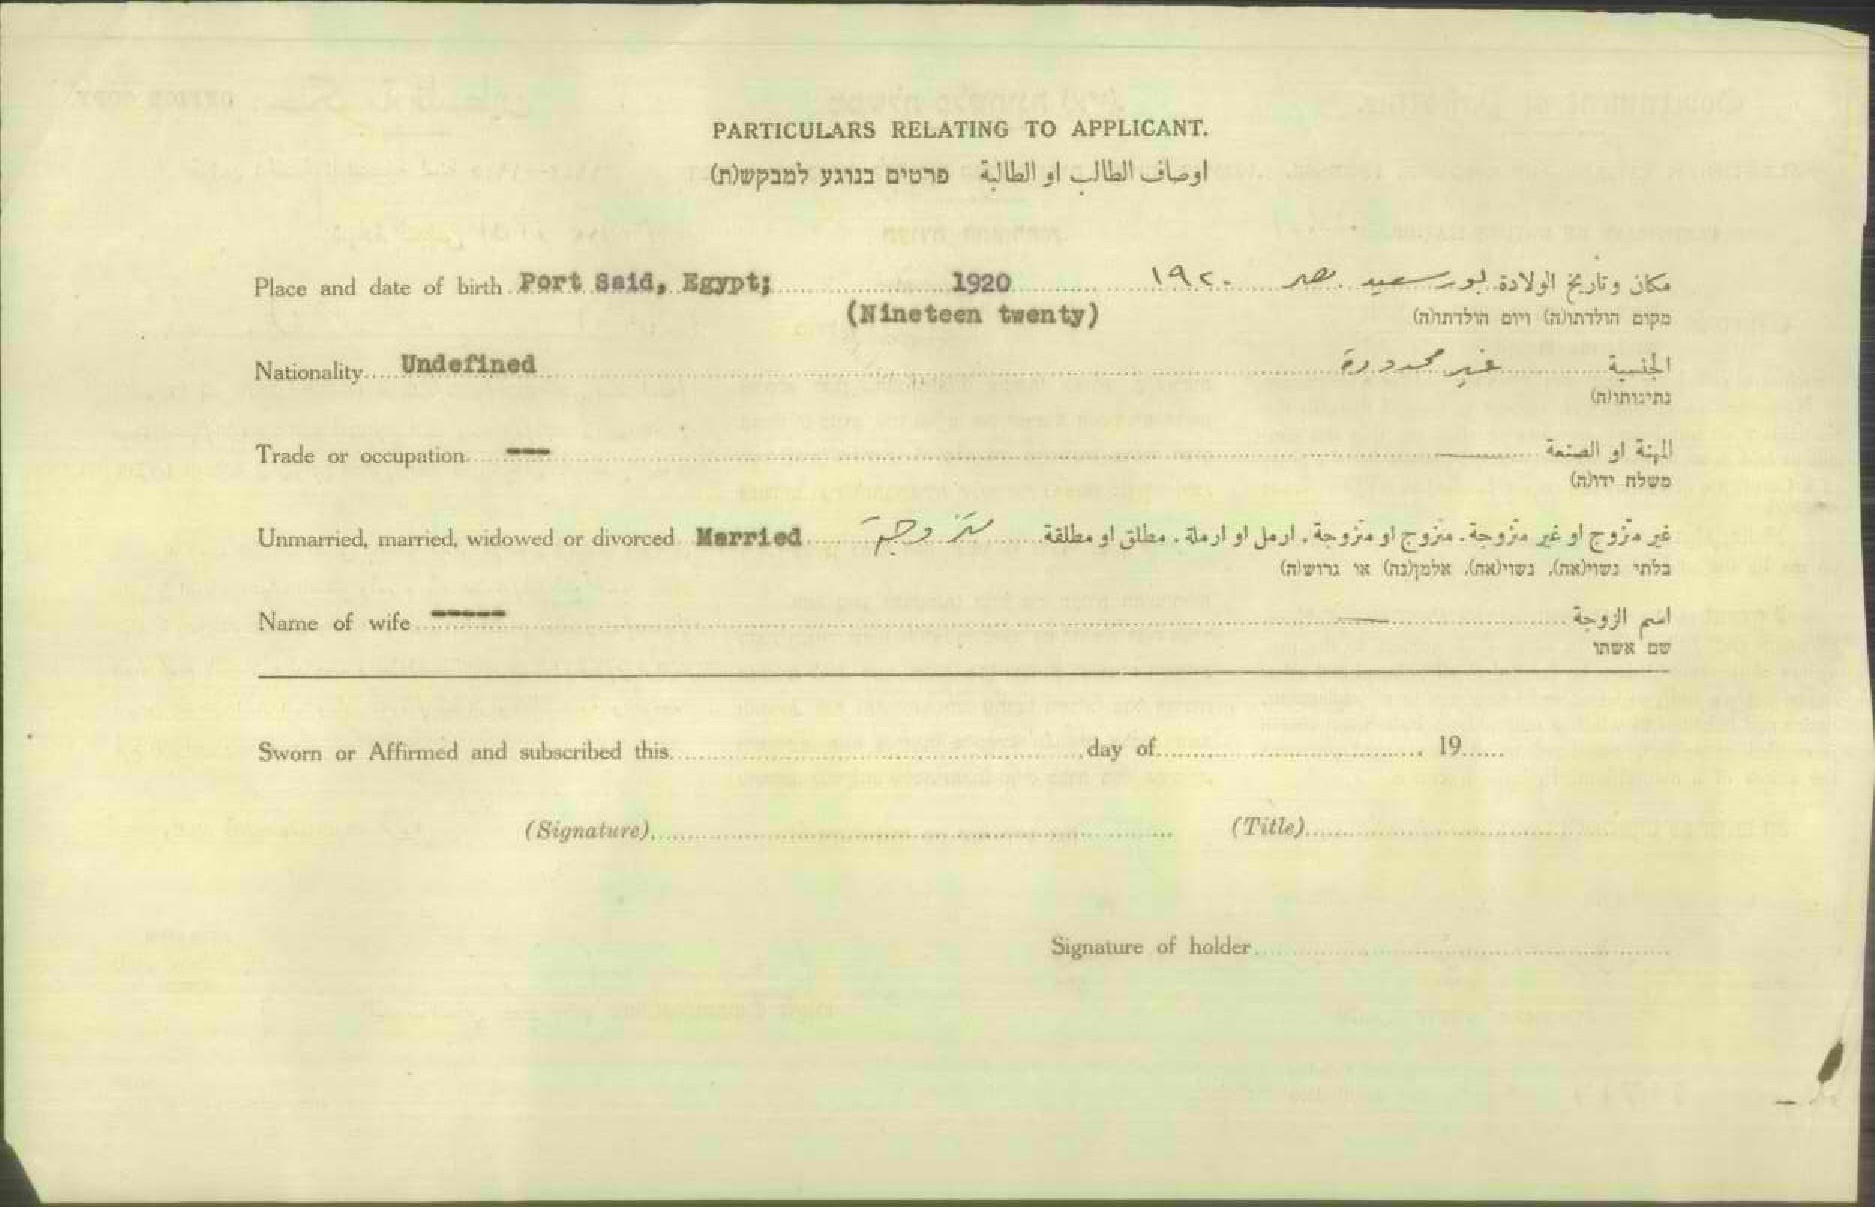 PARTICULARS RELATING TO APPLICANT.
اوصاف الطالب او الطالبة פרטים בנוגע למבקש(ת)
Place and date of birth Port Said, Egypt; 1920 مكان وتاريخ الولادة بور سعيد مصر ١٩٢٠
(Nineteen twenty) מקום הולדתו(ה) ויום הולדתו(ה)
Nationality Undefined الجنسية غير محدودة
נתינותו(ה)
Trade or occupation --- المهنة او الصنعة
משלח ידו(ה)
Unmarried, married, widowed or divorced Married غير متزوج او غير متزوجة. متزوج او متزوجة. ارمل او ارملة. مطلق او مطلقة متزوجة
בלתי נשוי(אה), נשוי(אה), אלמן(נה) או גרוש(ה)
Name of wife ----- اسم الزوجة
שם אשתו
Sworn or Affirmed and subscribed this day of 19
(Signature) (Title)
Signature of holder